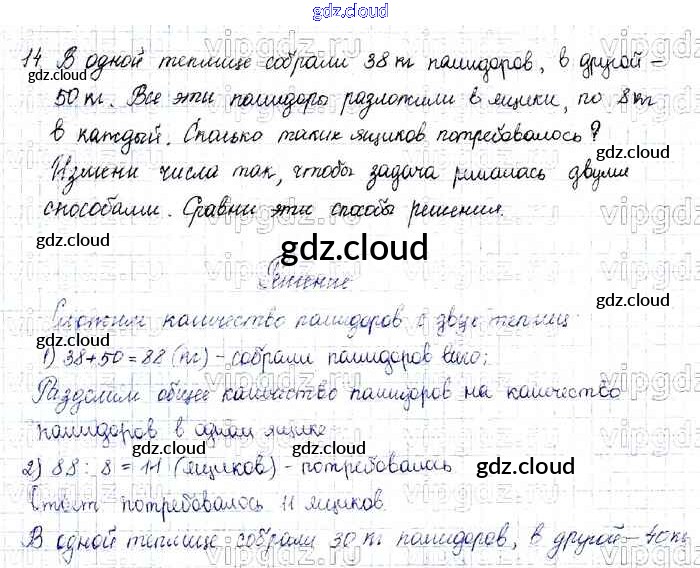 gdz.cloud
14. В одной теплице собрали 38 кг помидоров, в другой –
50 кг. Все эти помидоры разложили в ящики, по 8 кг
в каждый. Сколько таких ящиков потребовалось?
Измени числа так, чтобы задача решалась двумя
способами. Сравни эти способы решения.
gdz.cloud
Решение
Сложим количество помидоров с двух теплиц:
1) 38+50=88 (кг) - собрали помидоров всего;
Разделим общее количество помидоров на количество
помидоров в одном ящике
2) 88 : 8 = 11 (ящиков) - потребовалось
Ответ потребовалось 11 ящиков.
В одной теплице собрали 30 кг помидоров, в другой – 40 кг